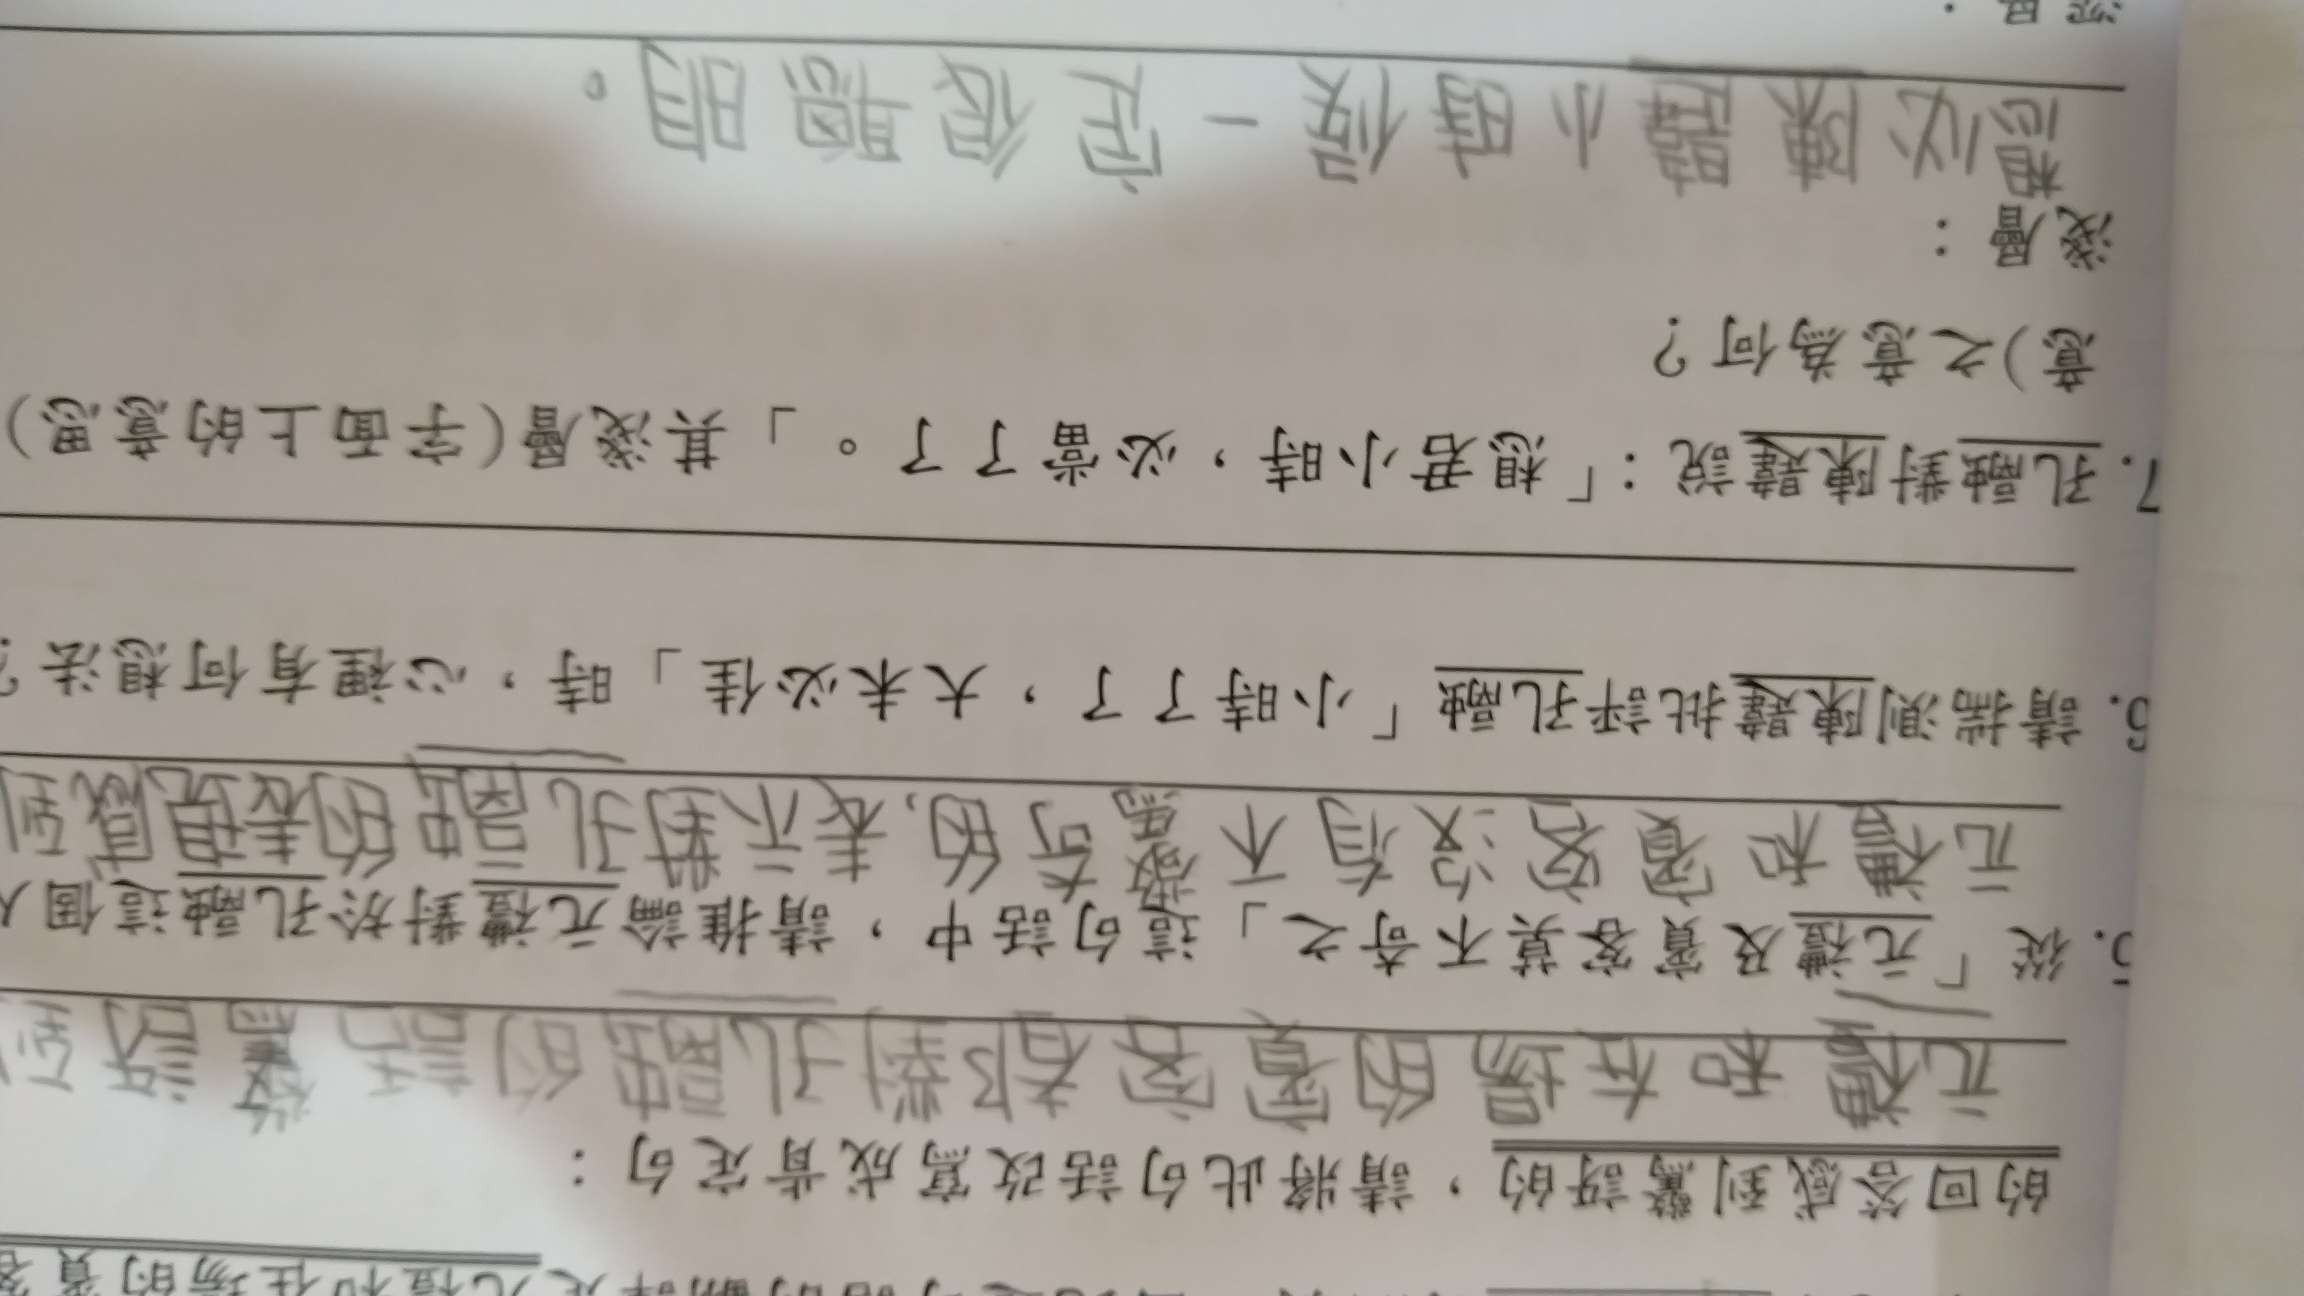 的回答感到驚訝的，請將此句話改寫成肯定句：
元禮和在場的賓客都對孔融的話驚訝
5.從「元禮及賓客莫不奇之」這句話中，請推論元禮對於孔融這個人
元禮和賓客沒有不驚奇的，表示對孔融的表現感到
6.請揣測陳韙批評孔融「小時了了，大未必佳」時，心裡有何想法？
7.孔融對陳韙說：「想君小時，必當了了。」其淺層(字面上的意思)
意)之意為何？
淺層：
想必陳韙小時候一定很聰明。
深層：